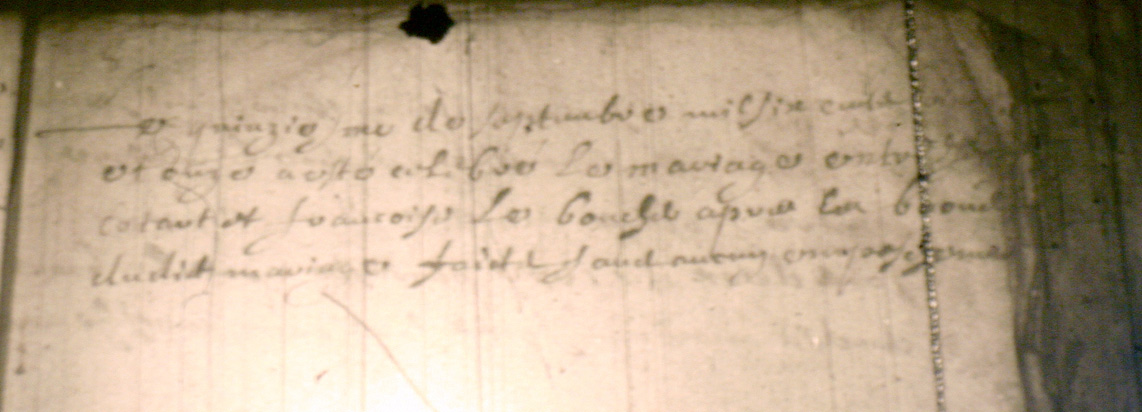 Le quinziesme de septembre mil six cents
et onze a esté celebré le mariage entre
cotart et francoise le bouche apres les
dudict mariage faicts sans aucun empeschement